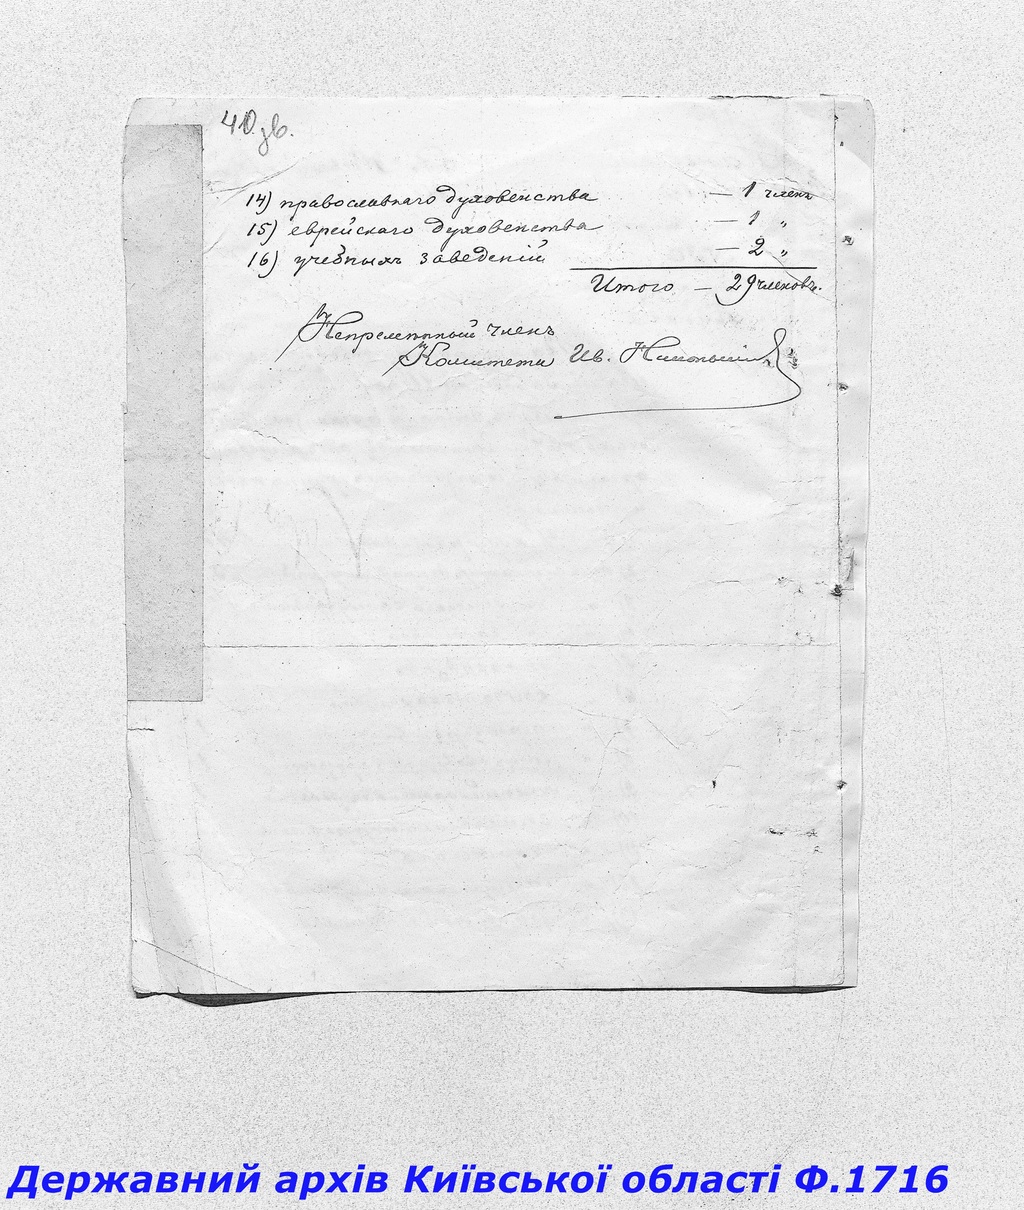 40 зв.
14) православнаго духовенства — 1 членъ
15) еврейскаго духовенства — 1 „
16) учебныхъ заведеній — 2 „
Итого — 29 членовъ.
Непремѣнный членъ
Комитета Ив.
Державний архів Київської області Ф.1716